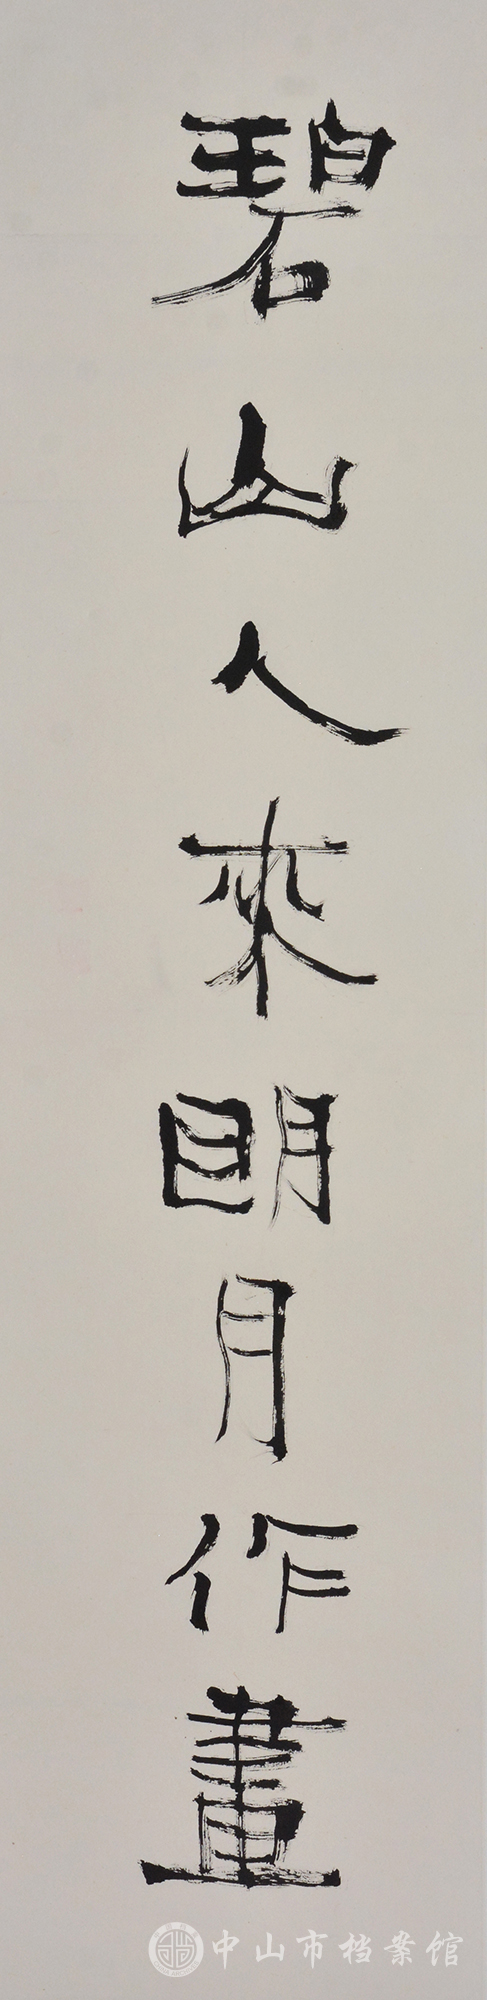 碧山人來明月作畫
中山市档案馆